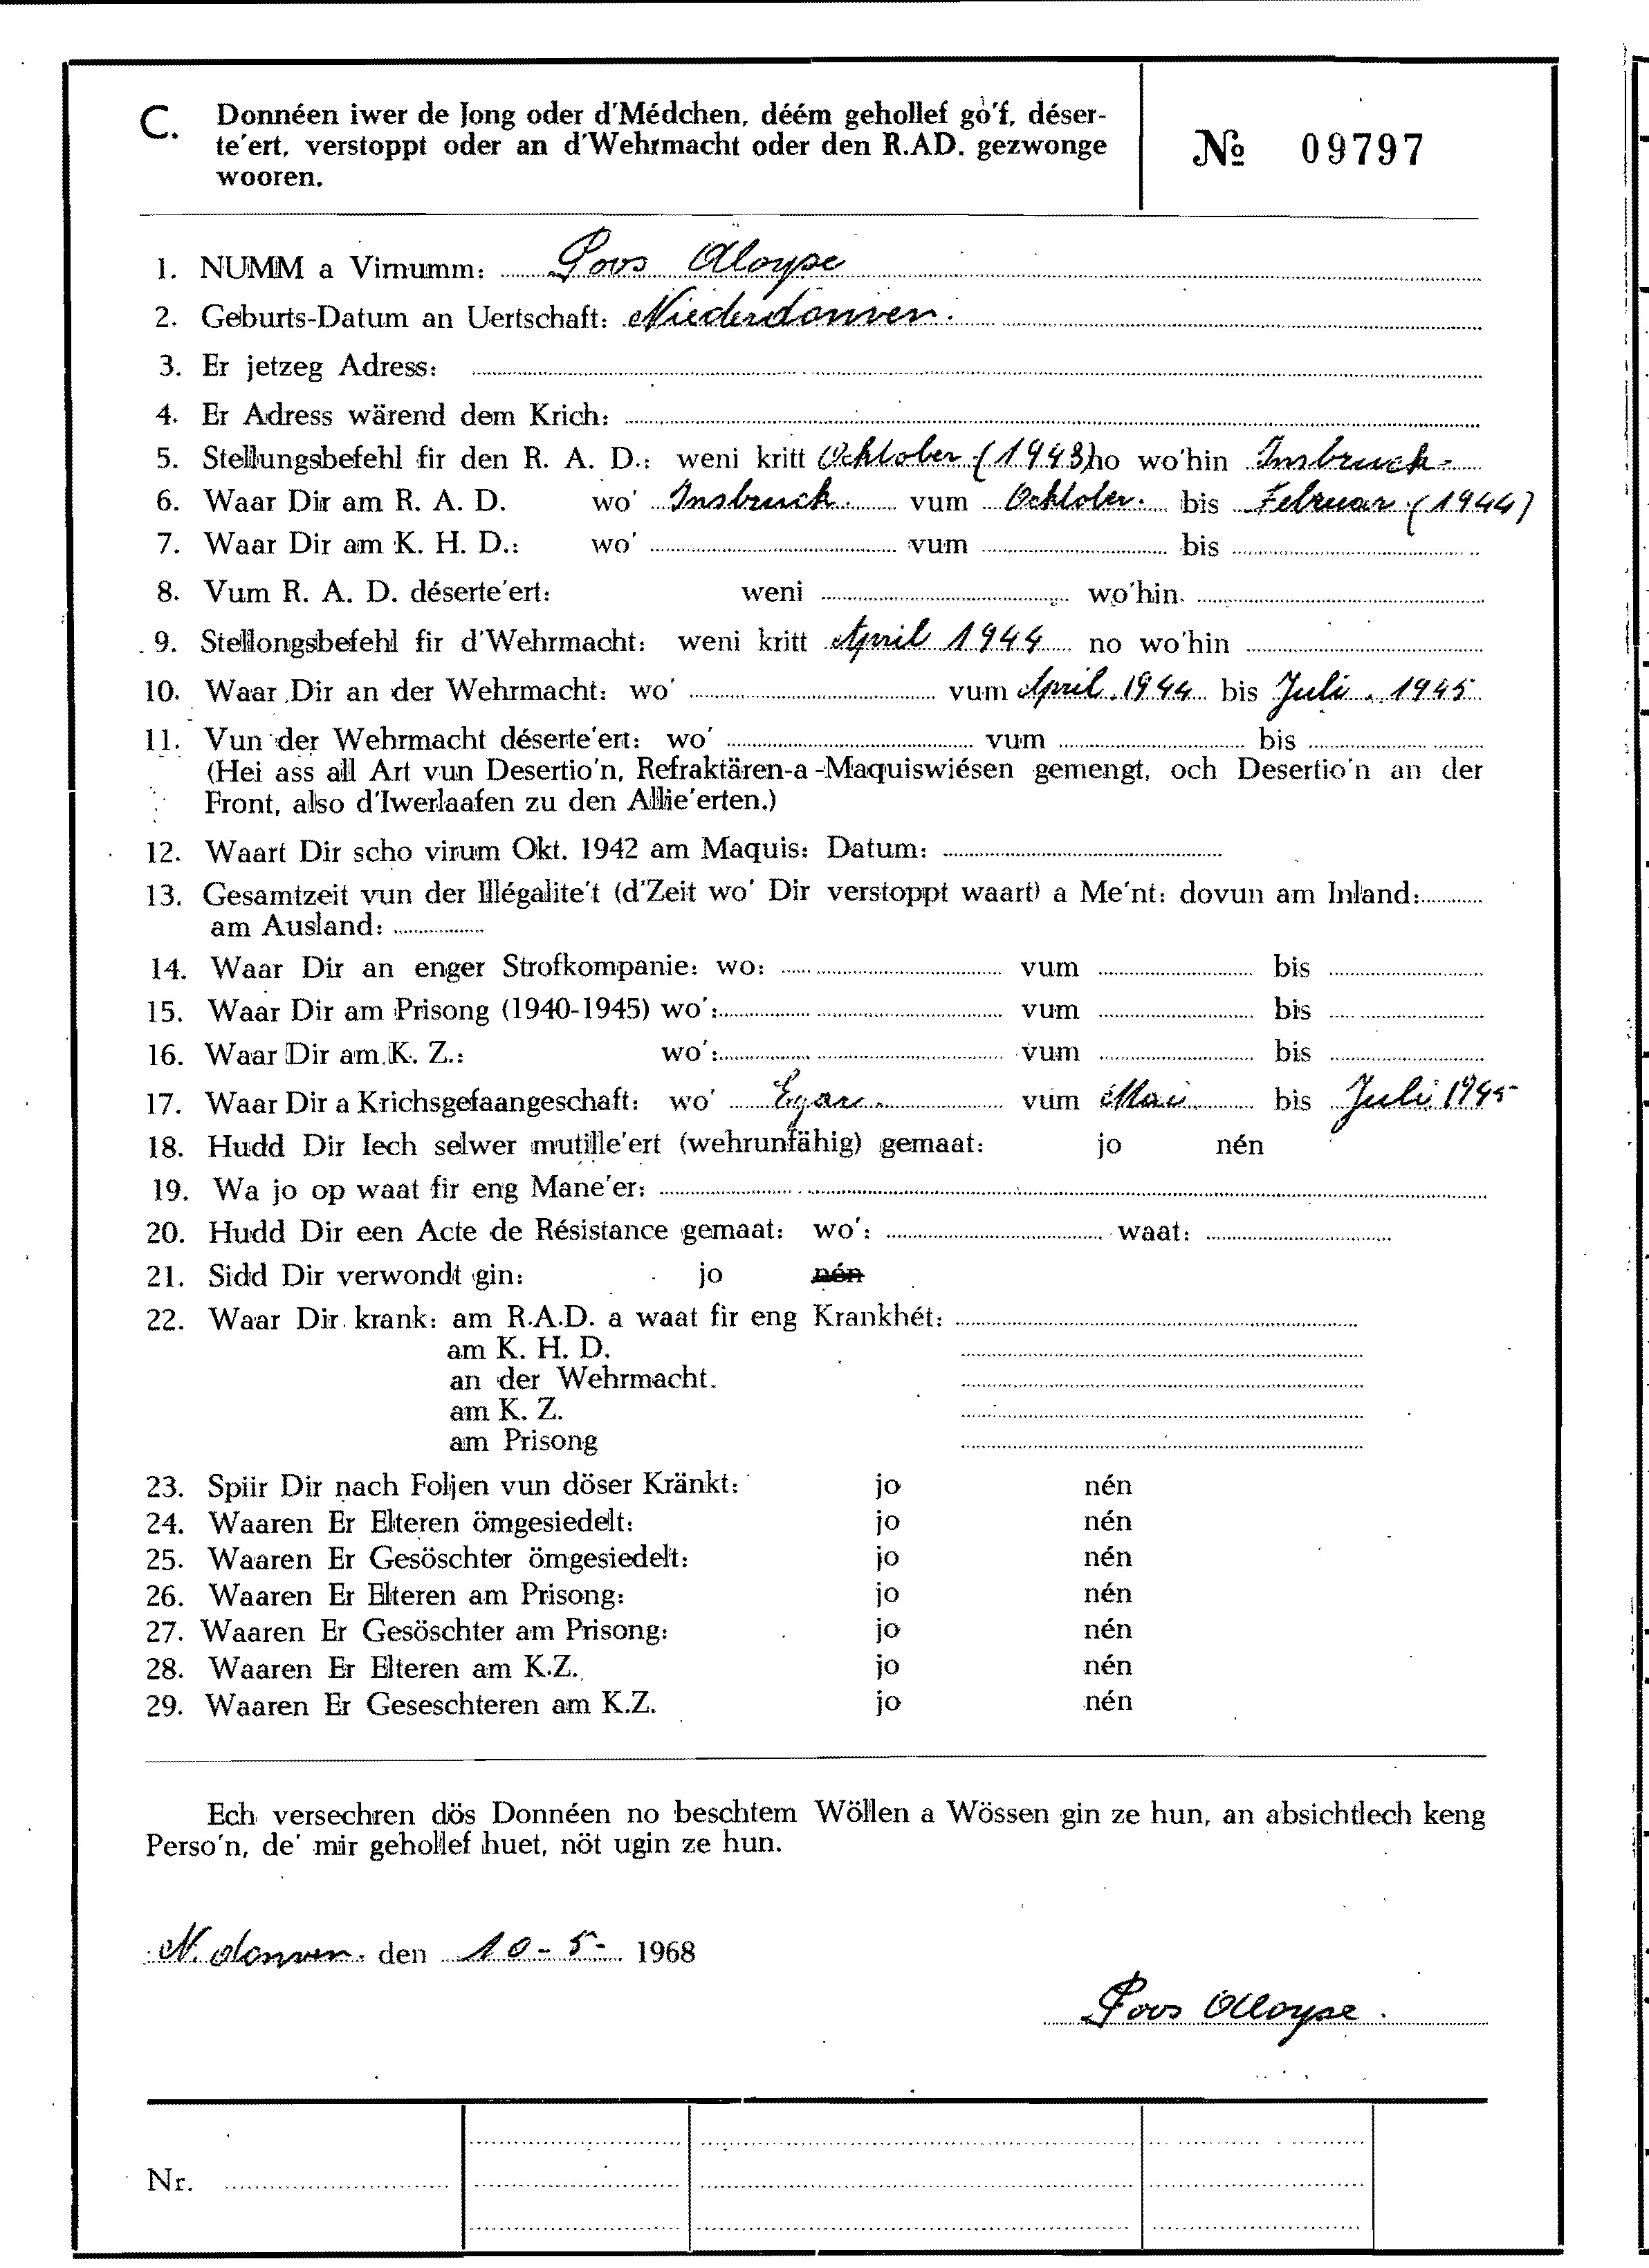 C. Donnéen iwer de Jong oder d'Médchen, déém gehollef go'f, déser-
te'ert, verstoppt oder an d'Wehrmacht oder den R.AD. gezwonge
wooren.
№ 09797
1. NUMM a Virnumm: Poos Aloyse
2. Geburts-Datum an Uertschaft: Niederdonven.
3. Er jetzeg Adress:
4. Er Adress wärend dem Krich:
5. Stellungsbefehl fir den R. A. D.: weni kritt Ochtober (1943) no wo'hin Insbruck-
6. Waar Dir am R. A. D. wo' Insbruck. vum Ochtober. bis Februar (1944)
7. Waar Dir am K. H. D.: wo' vum bis
8. Vum R. A. D. déserte'ert: weni wo'hin
9. Stellongsbefehl fir d'Wehrmacht: weni kritt April 1944 no wo'hin
10. Waar Dir an der Wehrmacht: wo' vum April. 1944 bis Juli. 1945
11. Vun der Wehrmacht déserte'ert: wo' vum bis
(Hei ass all Art vun Desertio'n, Refraktären-a-Maquiswiésen gemengt, och Desertio'n an der
Front, also d'Iwerlaafen zu den Allie'erten.)
12. Waart Dir scho virum Okt. 1942 am Maquis: Datum:
13. Gesamtzeit vun der Illégalite't (d'Zeit wo' Dir verstoppt waart) a Me'nt: dovun am Inland:
am Ausland:
14. Waar Dir an enger Strofkompanie: wo: vum bis
15. Waar Dir am Prisong (1940-1945) wo': vum bis
16. Waar Dir am K. Z.: wo': vum bis
17. Waar Dir a Krichsgefaangeschaft: wo' vum Mai bis Juli 1945
18. Hudd Dir Iech selwer mutille'ert (wehrunfähig) gemaat: jo nén
19. Wa jo op waat fir eng Mane'er:
20. Hudd Dir een Acte de Résistance gemaat: wo': waat:
21. Sidd Dir verwondt gin: jo nén
22. Waar Dir krank: am R.A.D. a waat fir eng Krankhét:
am K. H. D.
an der Wehrmacht.
am K. Z.
am Prisong
23. Spiir Dir nach Foljen vun döser Kränkt: jo nén
24. Waaren Er Elteren ömgesiedelt: jo nén
25. Waaren Er Gesöschter ömgesiedelt: jo nén
26. Waaren Er Elteren am Prisong: jo nén
27. Waaren Er Gesöschter am Prisong: jo nén
28. Waaren Er Elteren am K.Z. jo nén
29. Waaren Er Geseschteren am K.Z. jo nén
Ech versechren dös Donnéen no beschtem Wöllen a Wössen gin ze hun, an absichtlech keng
Perso'n, de' mir gehollef huet, nöt ugin ze hun.
N. donven. den 10-5- 1968
Poos Aloyse.
Nr.